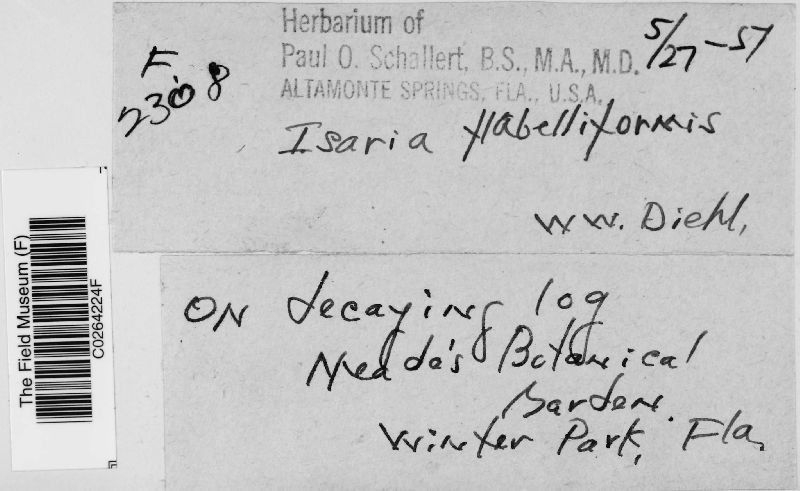 Herbarium of
Paul O. Schallert, B.S., M.A., M.D.
ALTAMONTE SPRINGS, FLA., U.S.A.
5/27-57
F.
2308
Isaria flabelliformis
WW. Diehl,
ON decaying log
Meade's Botanical
Garden.
Winter Park, Fla,
The Field Museum (F)
C0264224F